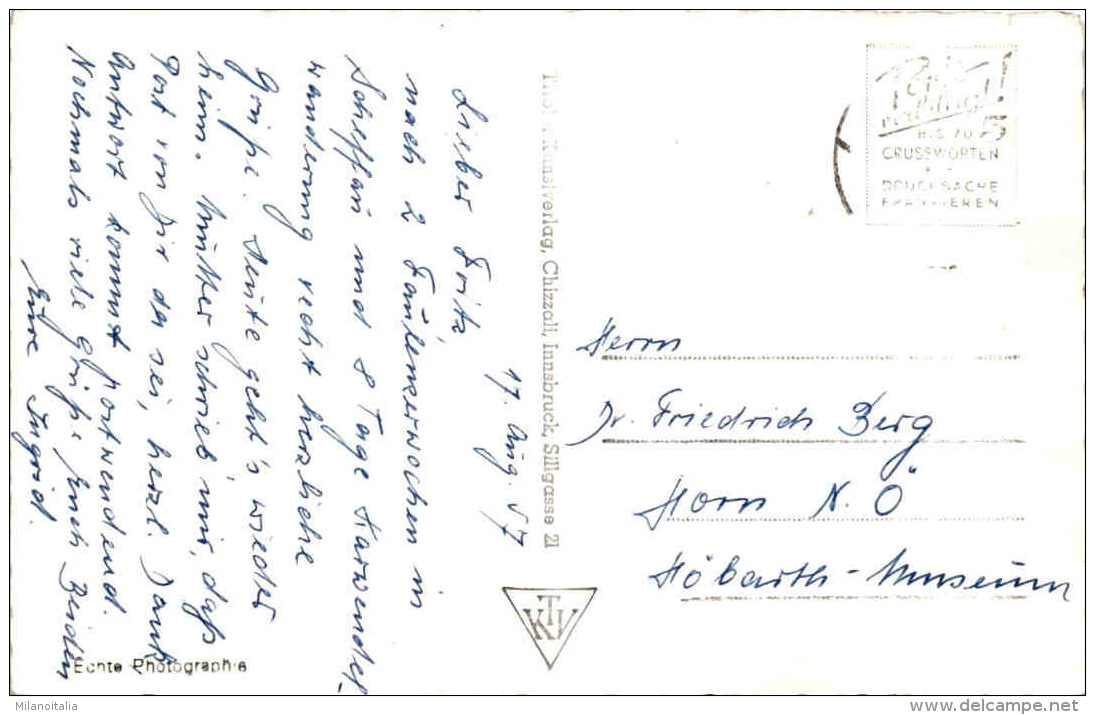 17. Aug. 57
Lieber Fritz,
nach 2 Faulenzerwochen in
Scheffau und 8 Tage Karwendel-
wanderung recht herzliche
Grüße. Heute geht's wieder
heim. Mutter schrieb mir, daß
Post von Dir da sei, herzl. Dank,
Antwort kommt postwendend.
Nochmals viele Grüße Euch Beiden
Eure Ingrid.
Echte Photographie
Kunstverlag, Chizzali, Innsbruck, Sillgasse 21
KTV
BIS ZU 5
GRUSSWORTEN
DRUCKSACHE
FRANKIEREN
Herrn
Dr. Friedrich Berg
Horn N. Ö
Höbarth-Museum
Milanoitalia
delcampe.net